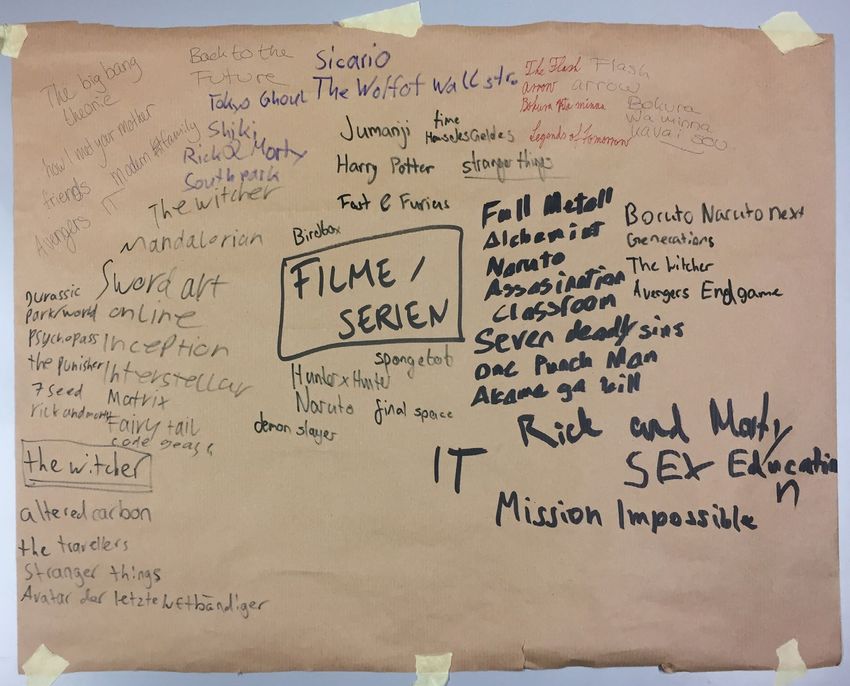 The big bang
theorie
how I met your mother
friends
Modern family
Avengers
IT
Back to the
Future
Tokyo Ghoul
Shiki
Rick & Morty
Southpark
The witcher
Mandalorian
Sicario
The Wolf of Wall str.
Jumanji
Harry Potter
Fast & Furius
time
Haus des Geldes
stranger things
The Flash
arrow
Bokura wa minna
Legends of Tomorrow
Flash
arrow
Bokura
wa minna
kavai sou
Birdbox
FILME /
SERIEN
Full Metall
Alchemist
Naruto
Assasination
Classroom
Seven deadly sins
One Punch Man
Akame ga kill
Boruto Naruto next
Generations
The witcher
Avengers Endgame
Sword art
online
Inception
Interstellar
Matrix
Fairy tail
code geass
Jurassic
park/world
Psychopass
the punisher
7 seed
rick and morty
the witcher
altered carbon
the travellers
Stranger things
Avatar der letzte Luftbändiger
spongebob
Hunter x Hunter
Naruto
final space
demon slayer
Rick and Morty
IT
SEX Education
Mission Impossible